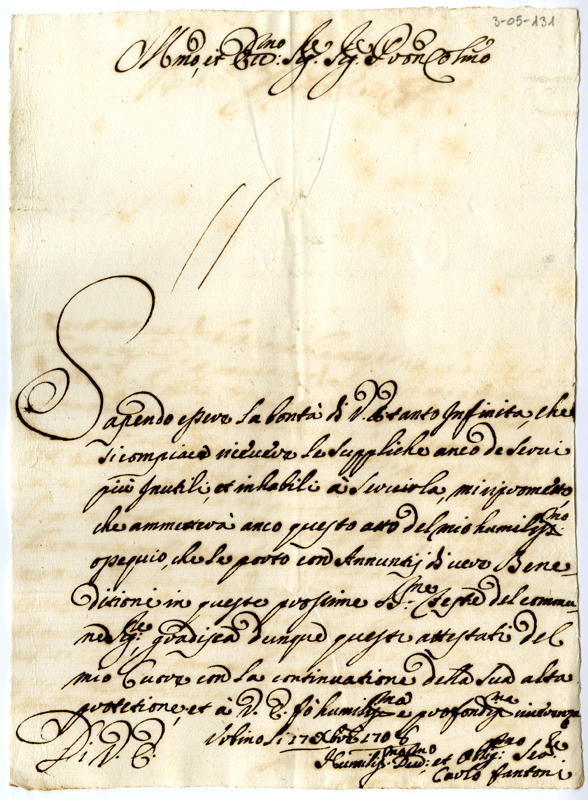 3-05-131
Ill.mo, et Ecc.mo Sig.re Sig.re P.ron Col.mo
Sapendo essere la bontà di V. E. tanto Infinita, che
si compiace ricevere le suppliche anco de servi
più Inutili, et inhabili à servirla, mi riprometto
che ammetterà anco questo atto del mio humiliss.mo
ossequio, che le porto con Annuntij di vere Bene-
ditioni in queste prossime S.me Feste del commu-
ne Sig.re, gradisca dunque questi attestati del
mio Cuore con la continuatione della sua alta
protetione, et à V. E. fò humiliss.ma e profondiss.ma
Di V. E.
Urbino li 17 Xbre 1706
Humiliss.mo Dev.mo et Obblig.mo Ser.re
Carlo Fantoni